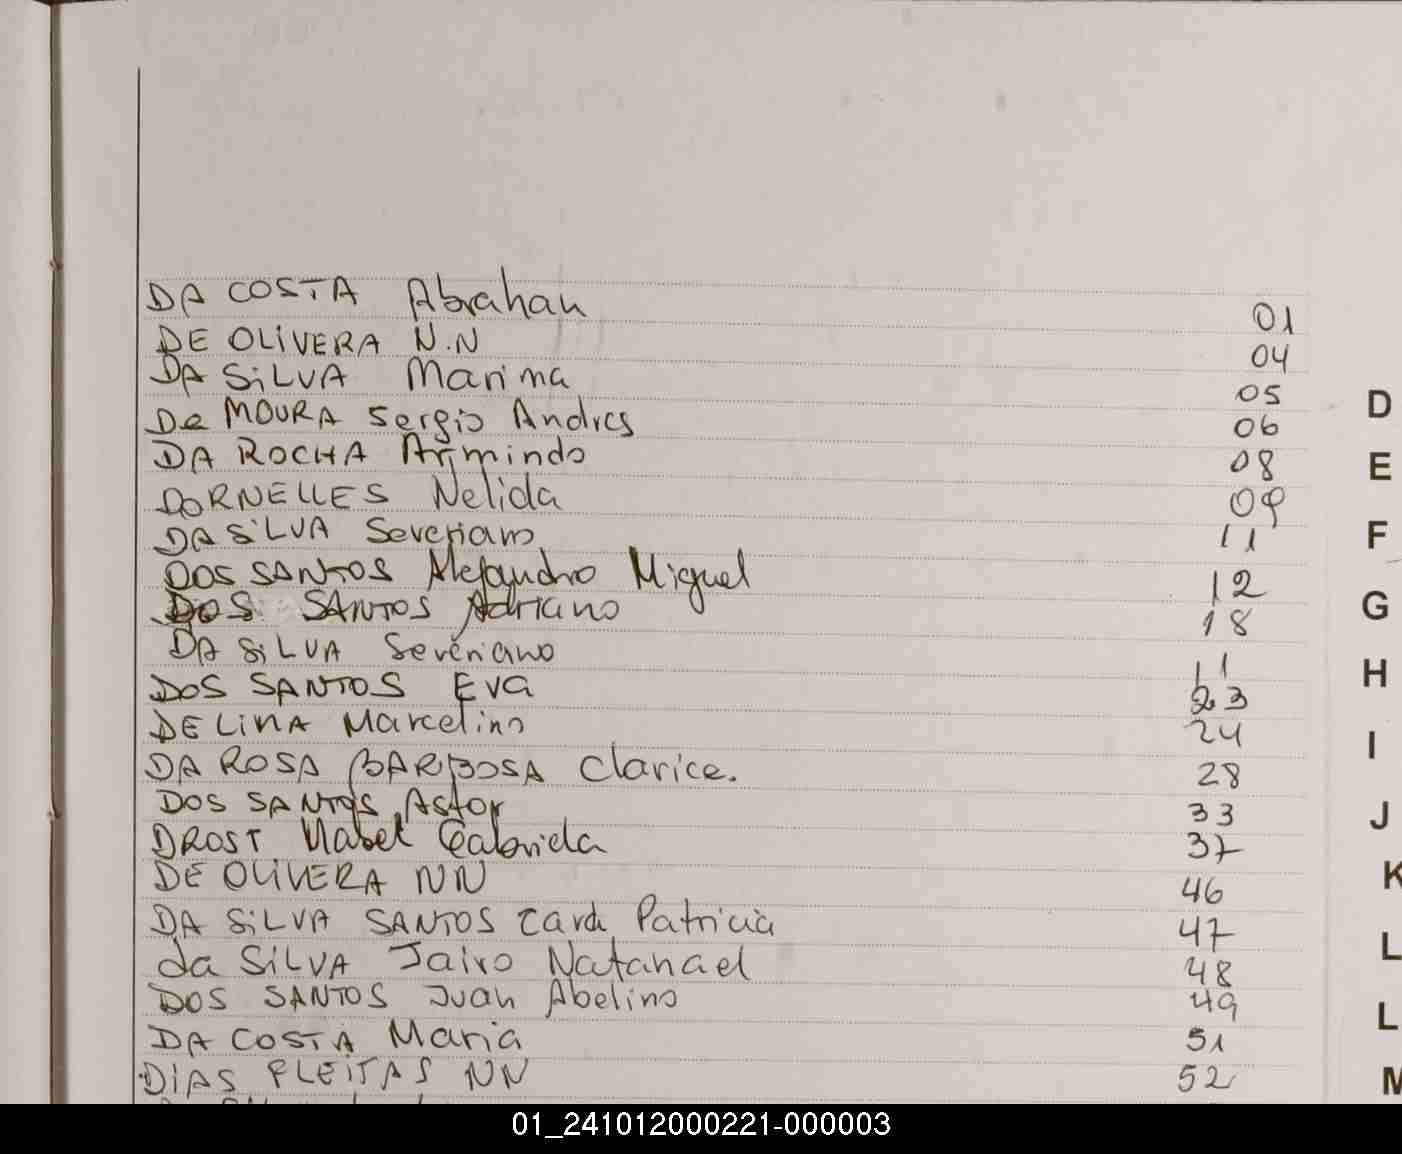 DA COSTA Abrahan 01
DE OLIVERA N.N 04
DA SILVA Marina 05
De MOURA Sergio Andres 06
DA ROCHA Armindo 08
DORNELLES Nelida 09
DA SILVA Severiano 11
DOS SANTOS Alejandro Miguel 12
DOS SANTOS Adriano 18
DA SILVA Severiano 11
DOS SANTOS Eva 23
DE LIMA Marcelino 24
DA ROSA BARBOSA Clarice. 28
DOS SANTOS Astor 33
DROST Mabel Gabriela 37
DE OLIVERA NN 46
DA SILVA SANTOS Patricia 47
da SILVA Jairo Natanael 48
DOS SANTOS Juan Abelino 49
DA COSTA Maria 51
DIAS FLEITAS NN 52
D
E
F
G
H
I
J
K
L
L
M
01_241012000221-000003